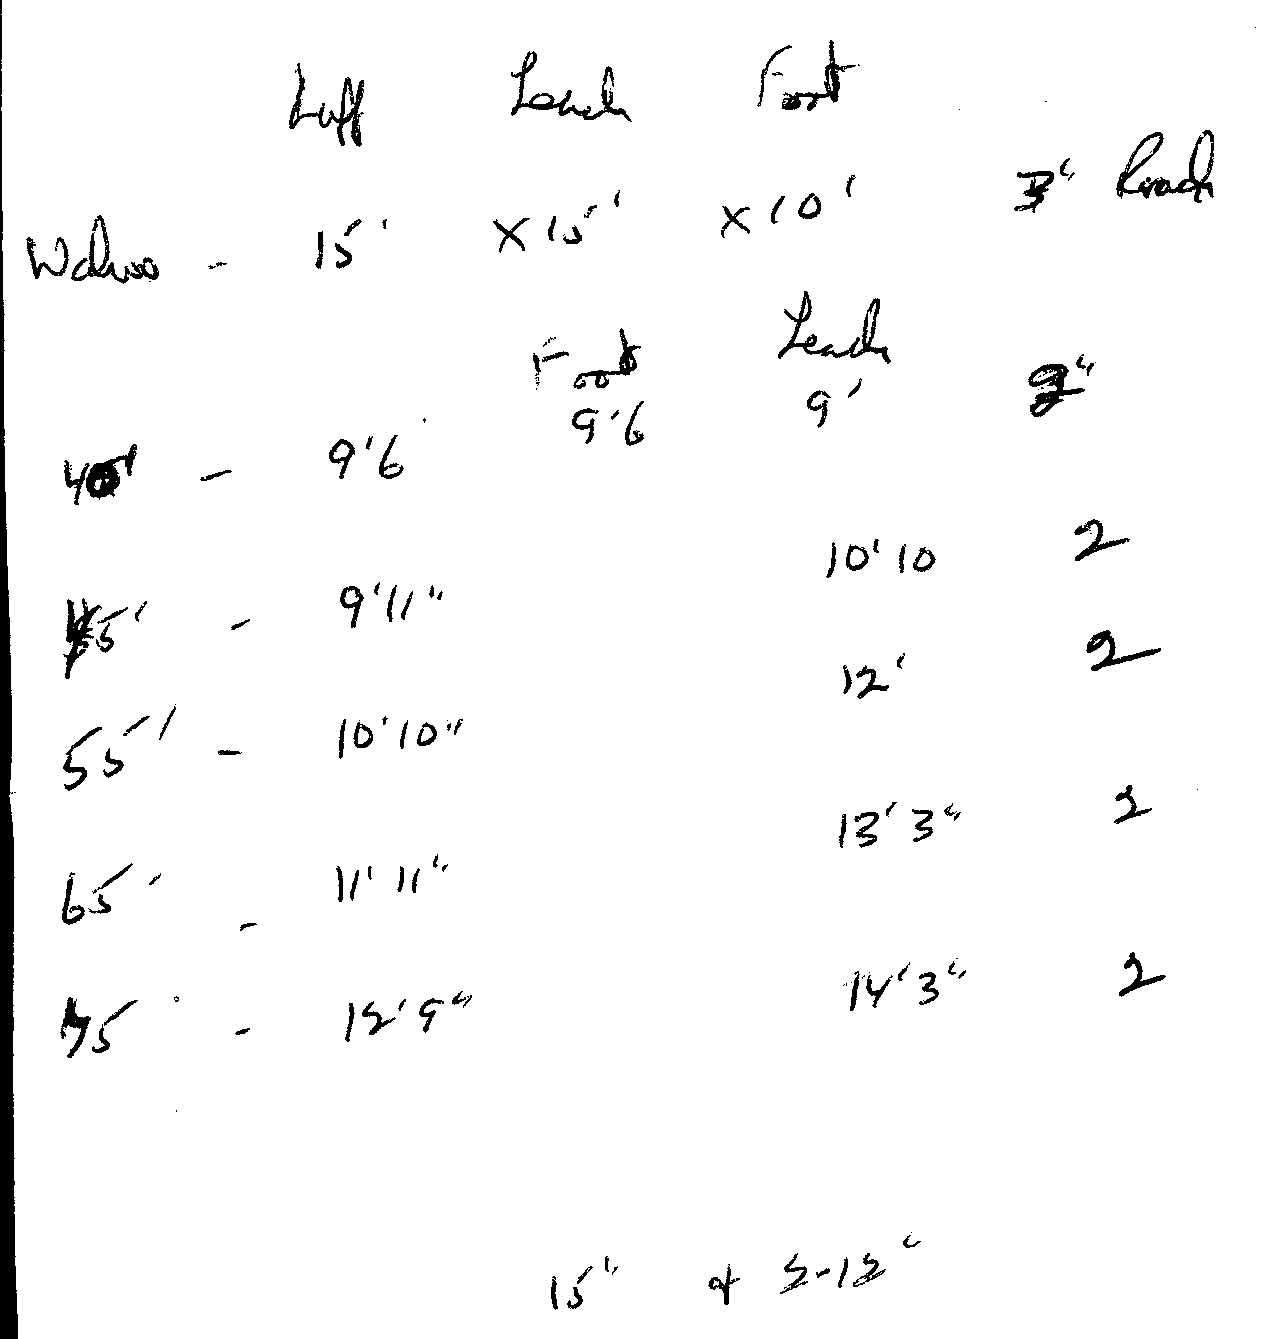 Luff Leach Foot
- 15' x 15' x 10' 3" Roach
Foot Leach
40' - 9'6 9'6 9' 2"
45' - 9'11" 10'10 2
55' - 10'10" 12' 2
65' - 11'11" 13'3" 2
75' - 12'9" 14'3" 2
15" + 2-12"